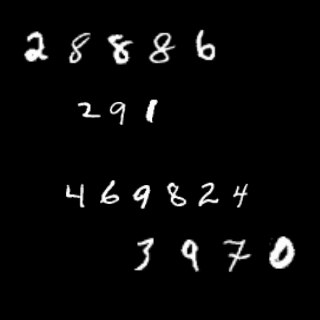 28886
291
469824
3970